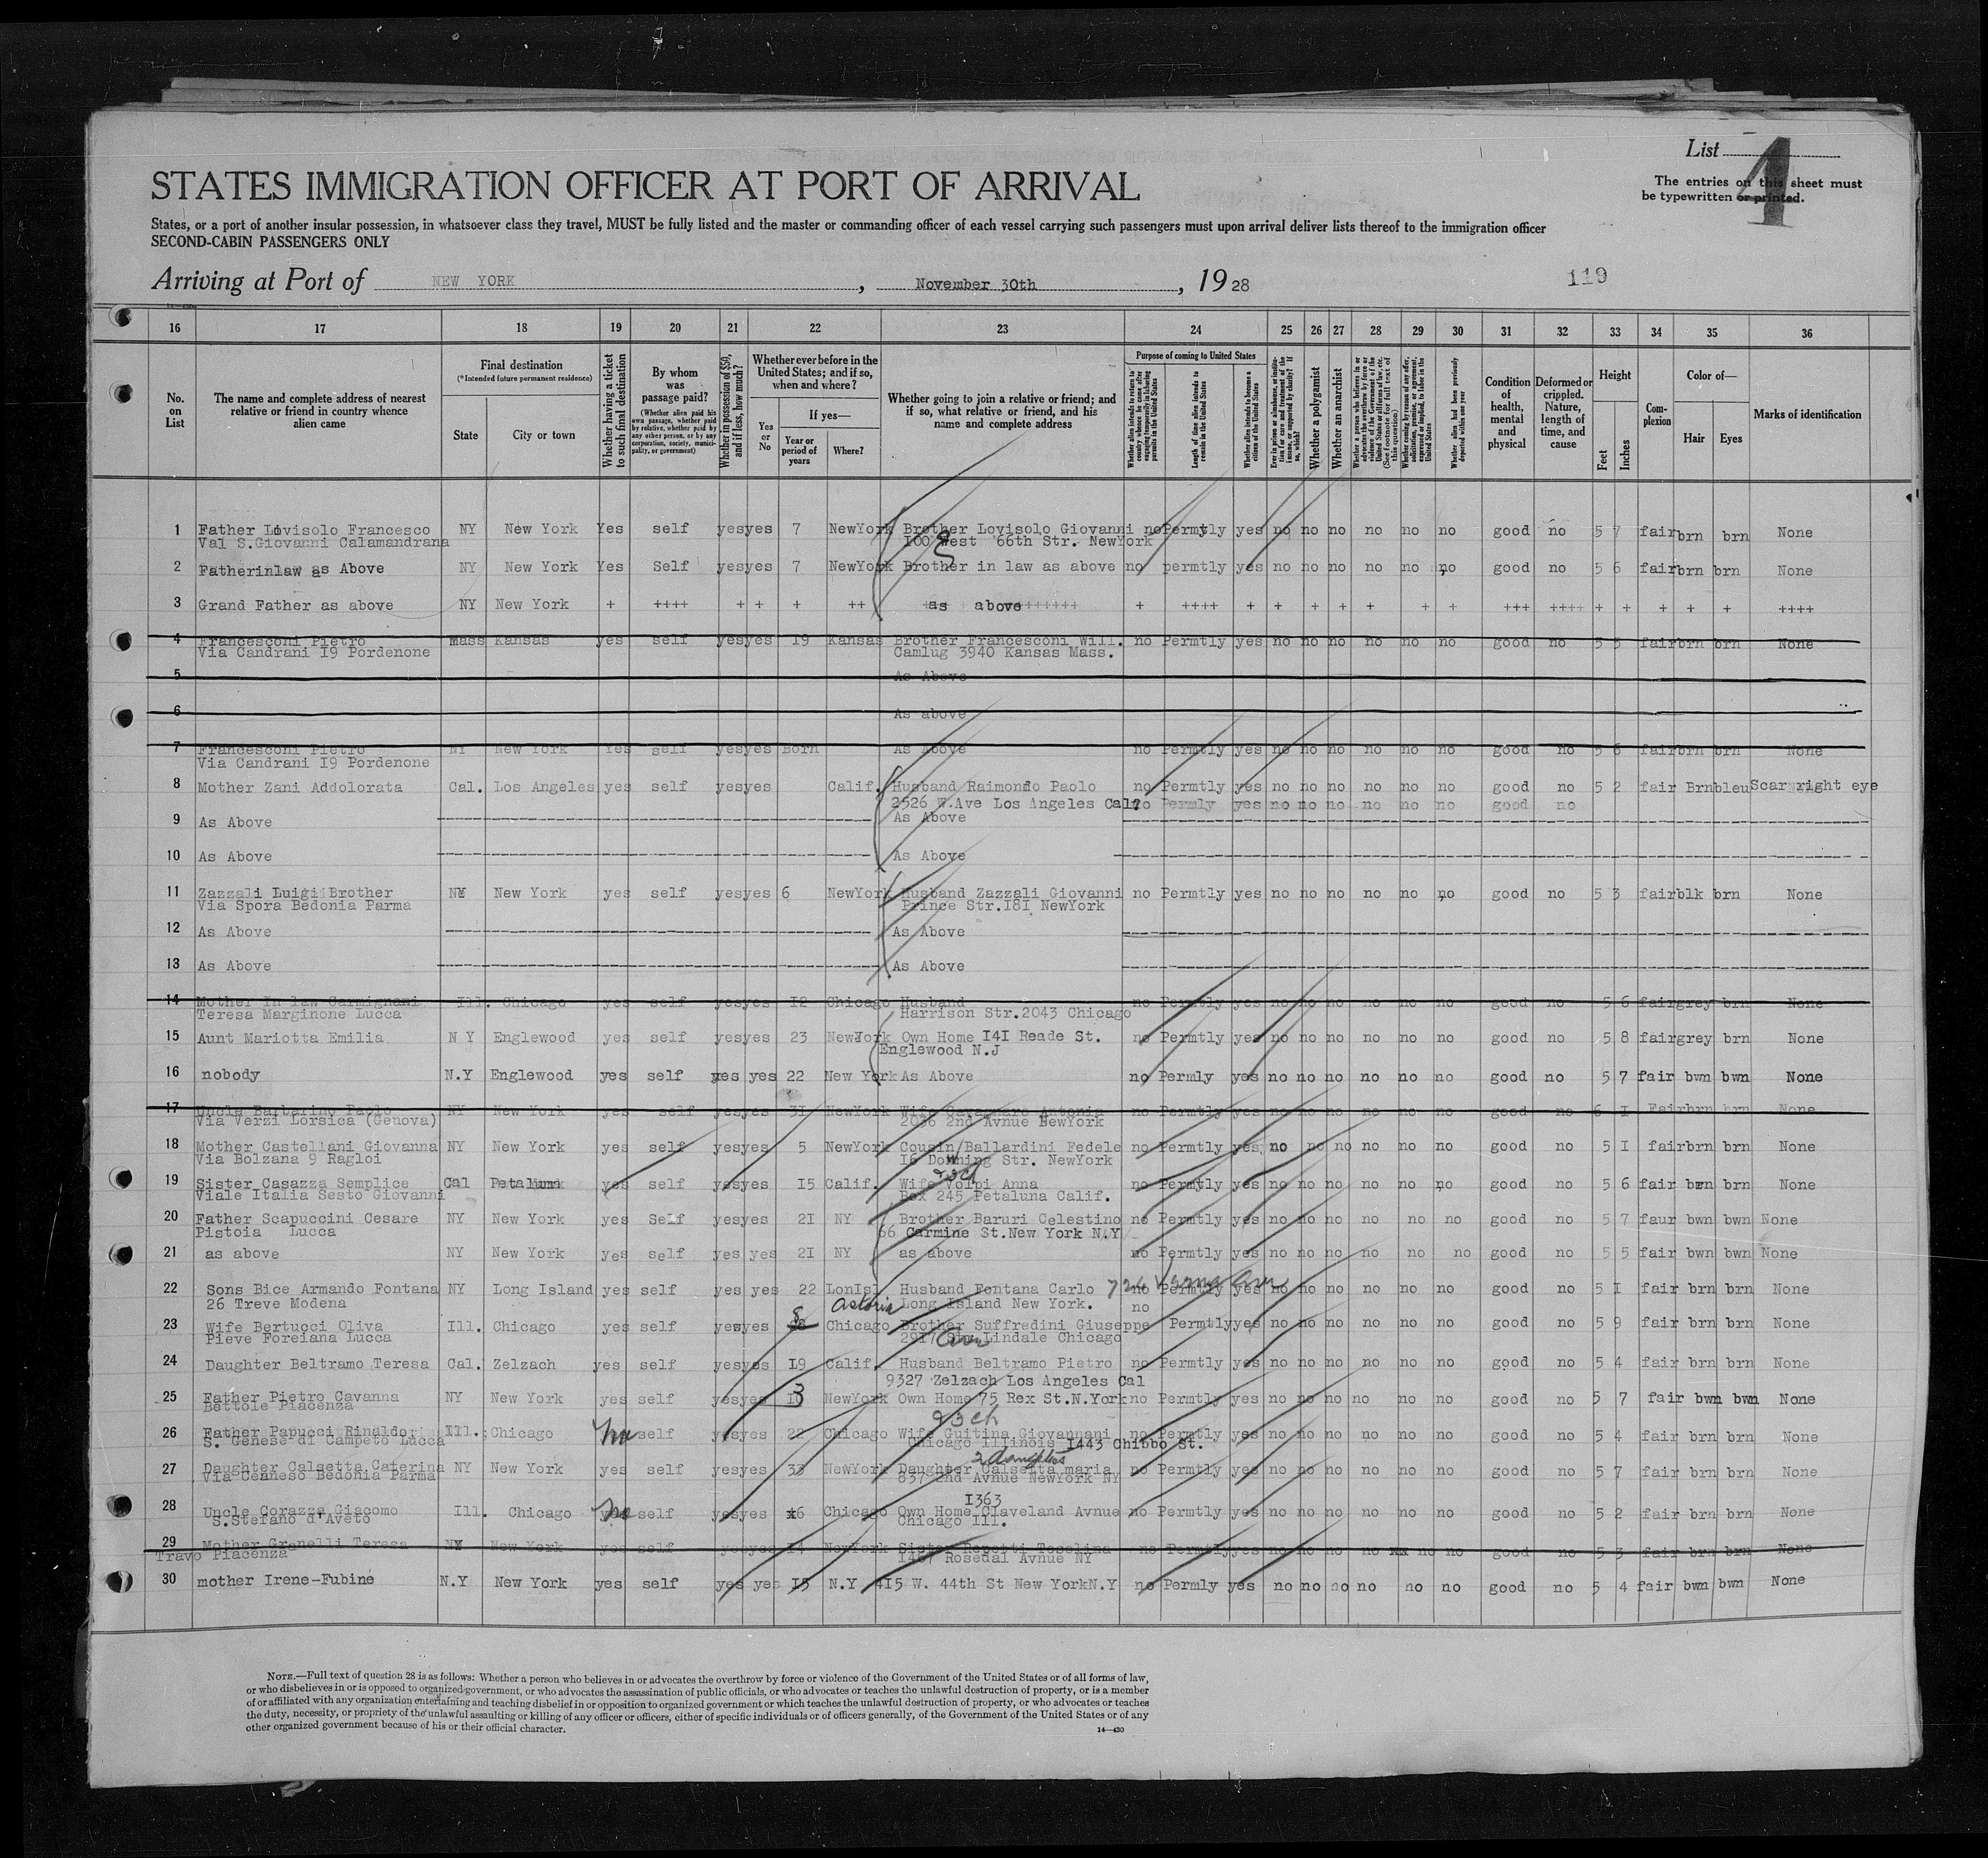 List 4
The entries on this sheet must
be typewritten or printed.
STATES IMMIGRATION OFFICER AT PORT OF ARRIVAL
States, or a port of another insular possession, in whatsoever class they travel, MUST be fully listed and the master or commanding officer of each vessel carrying such passengers must upon arrival deliver lists thereof to the immigration officer
SECOND-CABIN PASSENGERS ONLY
Arriving at Port of NEW YORK, November 30th, 1928
119
16 17 18 19 20 21 22 23 24 25 26 27 28 29 30 31 32 33 34 35 36
No. on List
The name and complete address of nearest relative or friend in country whence alien came
Final destination
(*Intended future permanent residence)
State
City or town
Whether having a ticket to such final destination
By whom was passage paid?
(Whether alien paid his own passage, whether paid by relative, whether paid by any other person, or by any corporation, society, municipality, or government)
Whether in possession of $50, and if less, how much?
Whether ever before in the United States; and if so, when and where?
Yes or No
If yes—
Year or period of years
Where?
Whether going to join a relative or friend; and if so, what relative or friend, and his name and complete address
Purpose of coming to United States
Whether alien intends to return to country whence he came after engaging temporarily in laboring pursuits in the United States
Length of time alien intends to remain in the United States
Whether alien intends to become a citizen of the United States
Whether a polygamist
Whether an anarchist
Whether alien had been previously deported within one year
Condition of health, mental and physical
Deformed or crippled. Nature, length of time, and cause
Height
Feet
Inches
Complexion
Color of—
Hair
Eyes
Marks of identification
1 Father Lovisolo Francesco NY New York Yes self yes yes 7 NewYork Brother Lovisolo Giovanni no Permtly yes no no no no no no good no 5 7 fair brn brn None
Val S.Giovanni Calamandrana 100 West 66th Str. NewYork
2 Fatherinlaw as Above NY New York Yes Self yes yes 7 NewYork Brother in law as above no permtly yes no no no no no no good no 5 6 fair brn brn None
3 Grand Father as above NY New York + ++++ + + + ++ as above + ++++ + + + + + + + +++ ++++ + + + + + ++++
4 Francesconi Pietro Mass Kansas yes self yes yes 19 Kansas Brother Francesconi Will. no Permtly yes no no no no no no good no 5 5 fair brn brn None
Via Candrani 19 Pordenone Camlug 3940 Kansas Mass.
5 As Above
6 As above
7 Francesconi Pietro NY New York Yes self yes yes Born As Above no Permtly yes no no no no no no good no 5 6 fair brn brn None
Via Candrani 19 Pordenone
8 Mother Zani Addolorata Cal. Los Angeles yes self yes yes Calif. Husband Raimondo Paolo no Permtly yes no no no no no no good no 5 2 fair Brn bleu Scar right eye
2526 W.Ave Los Angeles Cal no Permly yes no no no no no no good no
9 As Above As Above
10 As Above As Above
11 Zazzali Luigi Brother NY New York yes self yes yes 6 NewYork Husband Zazzali Giovanni no Permtly yes no no no no no no good no 5 3 fair blk brn None
Via Spora Bedonia Parma Prince Str.181 NewYork
12 As Above As Above
13 As Above As Above
14 Mother In law Carmignani Ill. Chicago yes self yes yes 12 Chicago Husband no Permtly yes no no no no no no good no 5 6 fair grey brn None
Teresa Marginone Lucca Harrison Str.2043 Chicago
15 Aunt Mariotta Emilia N Y Englewood yes self yes yes 23 NewYork Own Home 141 Reade St. no Permtly yes no no no no no no good no 5 8 fair grey brn None
Englewood N.J
16 nobody N.Y Englewood yes self yes yes 22 New York As Above no Permly yes no no no no no no good no 5 7 fair bwn bwn None
17 Uncle Barbarino Paolo NY New York yes self yes yes 31 NewYork Wife Antonia no Permtly yes no no no no no no good no 6 1 Fair brn brn None
Via Verzi Lorsica (Genova) 2036 2nd Avnue NewYork
18 Mother Castellani Giovanna NY New York yes self yes yes 5 NewYork Cousin Ballardini Fedele no Permtly yes no no no no no no good no 5 1 fair brn brn None
Via Bolzana 9 Ragloi 16 Downing Str. NewYork
19 Sister Casazza Semplice Cal Petaluma yes self yes yes 15 Calif. Wife Volpi Anna no Permtly yes no no no no no no good no 5 6 fair brn brn None
Viale Italia Sesto Giovanni Box 245 Petaluna Calif.
20 Father Scapuccini Cesare NY New York yes Self yes yes 21 NY Brother Baruri Celestino no Permtly yes no no no no no no good no 5 7 faur bwn bwn None
Pistoia Lucca 66 Carmine St.New York N.Y
21 as above NY New York yes self yes yes 21 NY as above no Permtly yes no no no no no no good no 5 5 fair bwn bwn None
22 Sons Bice Armando Fontana NY Long Island yes self yes yes 22 LonIsl Husband Fontana Carlo 724 no Permtly yes no no no no no no good no 5 1 fair brn brn None
26 Treve Modena Astoria Long Island New York. no
23 Wife Bertucci Oliva Ill. Chicago yes self yes yes 8 Chicago Brother Suffredini Giuseppe Permtly yes no no no no no no good no 5 9 fair brn brn None
Pieve Foreiana Lucca 2917 Lindale Chicago Ave
24 Daughter Beltramo Teresa Cal. Zelzach yes self yes yes 19 Calif. Husband Beltramo Pietro no Permtly yes no no no no no no good no 5 4 fair brn brn None
9327 Zelzach Los Angeles Cal
25 Father Pietro Cavanna NY New York yes self yes yes 3 NewYork Own Home 75 Rex St.N.York no Permtly yes no no no no no no good no 5 7 fair bwn bwn None
Bettole Piacenza
26 Father Papucci Rinaldo Ill. Chicago no self yes yes 22 Chicago Wife Guitina Giovannani no Permtly yes no no no no no no good no 5 4 fair brn brn None
S. Genese di Campeto Lucca Chicago Illinois 1443 Chibbo St.
27 Daughter Calsetta Caterina NY New York yes self yes yes 33 NewYork Daughter Calsetta maria no Permtly yes no no no no no no good no 5 7 fair brn brn None
Via Ceaneso Bedonia Parma 837 2nd Avnue NewYork NY
28 Uncle Corazza Giacomo Ill. Chicago no self yes yes 16 Chicago Own Home 1363 Claveland Avnue no Permtly yes no no no no no no good no 5 2 fair brn brn None
S.Stefano d'Aveto Chicago Ill.
29 Mother Granelli Teresa NY New York yes self yes yes 14 NewYork Sister Repetti Tesolina no Permtly yes no no no no no no good no 5 3 fair brn brn None
Travo Piacenza 1467 Rosedal Avnue NY
30 mother Irene-Fubine N.Y New York yes self yes yes 15 N.Y 415 W. 44th St New YorkN.Y no Permly yes no no no no no no good no 5 4 fair bwn bwn None
NOTE.—Full text of question 28 is as follows: Whether a person who believes in or advocates the overthrow by force or violence of the Government of the United States or of all forms of law,
or who disbelieves in or is opposed to organized government, or who advocates the assassination of public officials, or who advocates or teaches the unlawful destruction of property, or is a member
of or affiliated with any organization entertaining and teaching disbelief in or opposition to organized government or which teaches the unlawful destruction of property, or who advocates or teaches
the duty, necessity, or propriety of the unlawful assaulting or killing of any officer or officers, either of specific individuals or of officers generally, of the Government of the United States or of any
other organized government because of his or their official character.
14—430